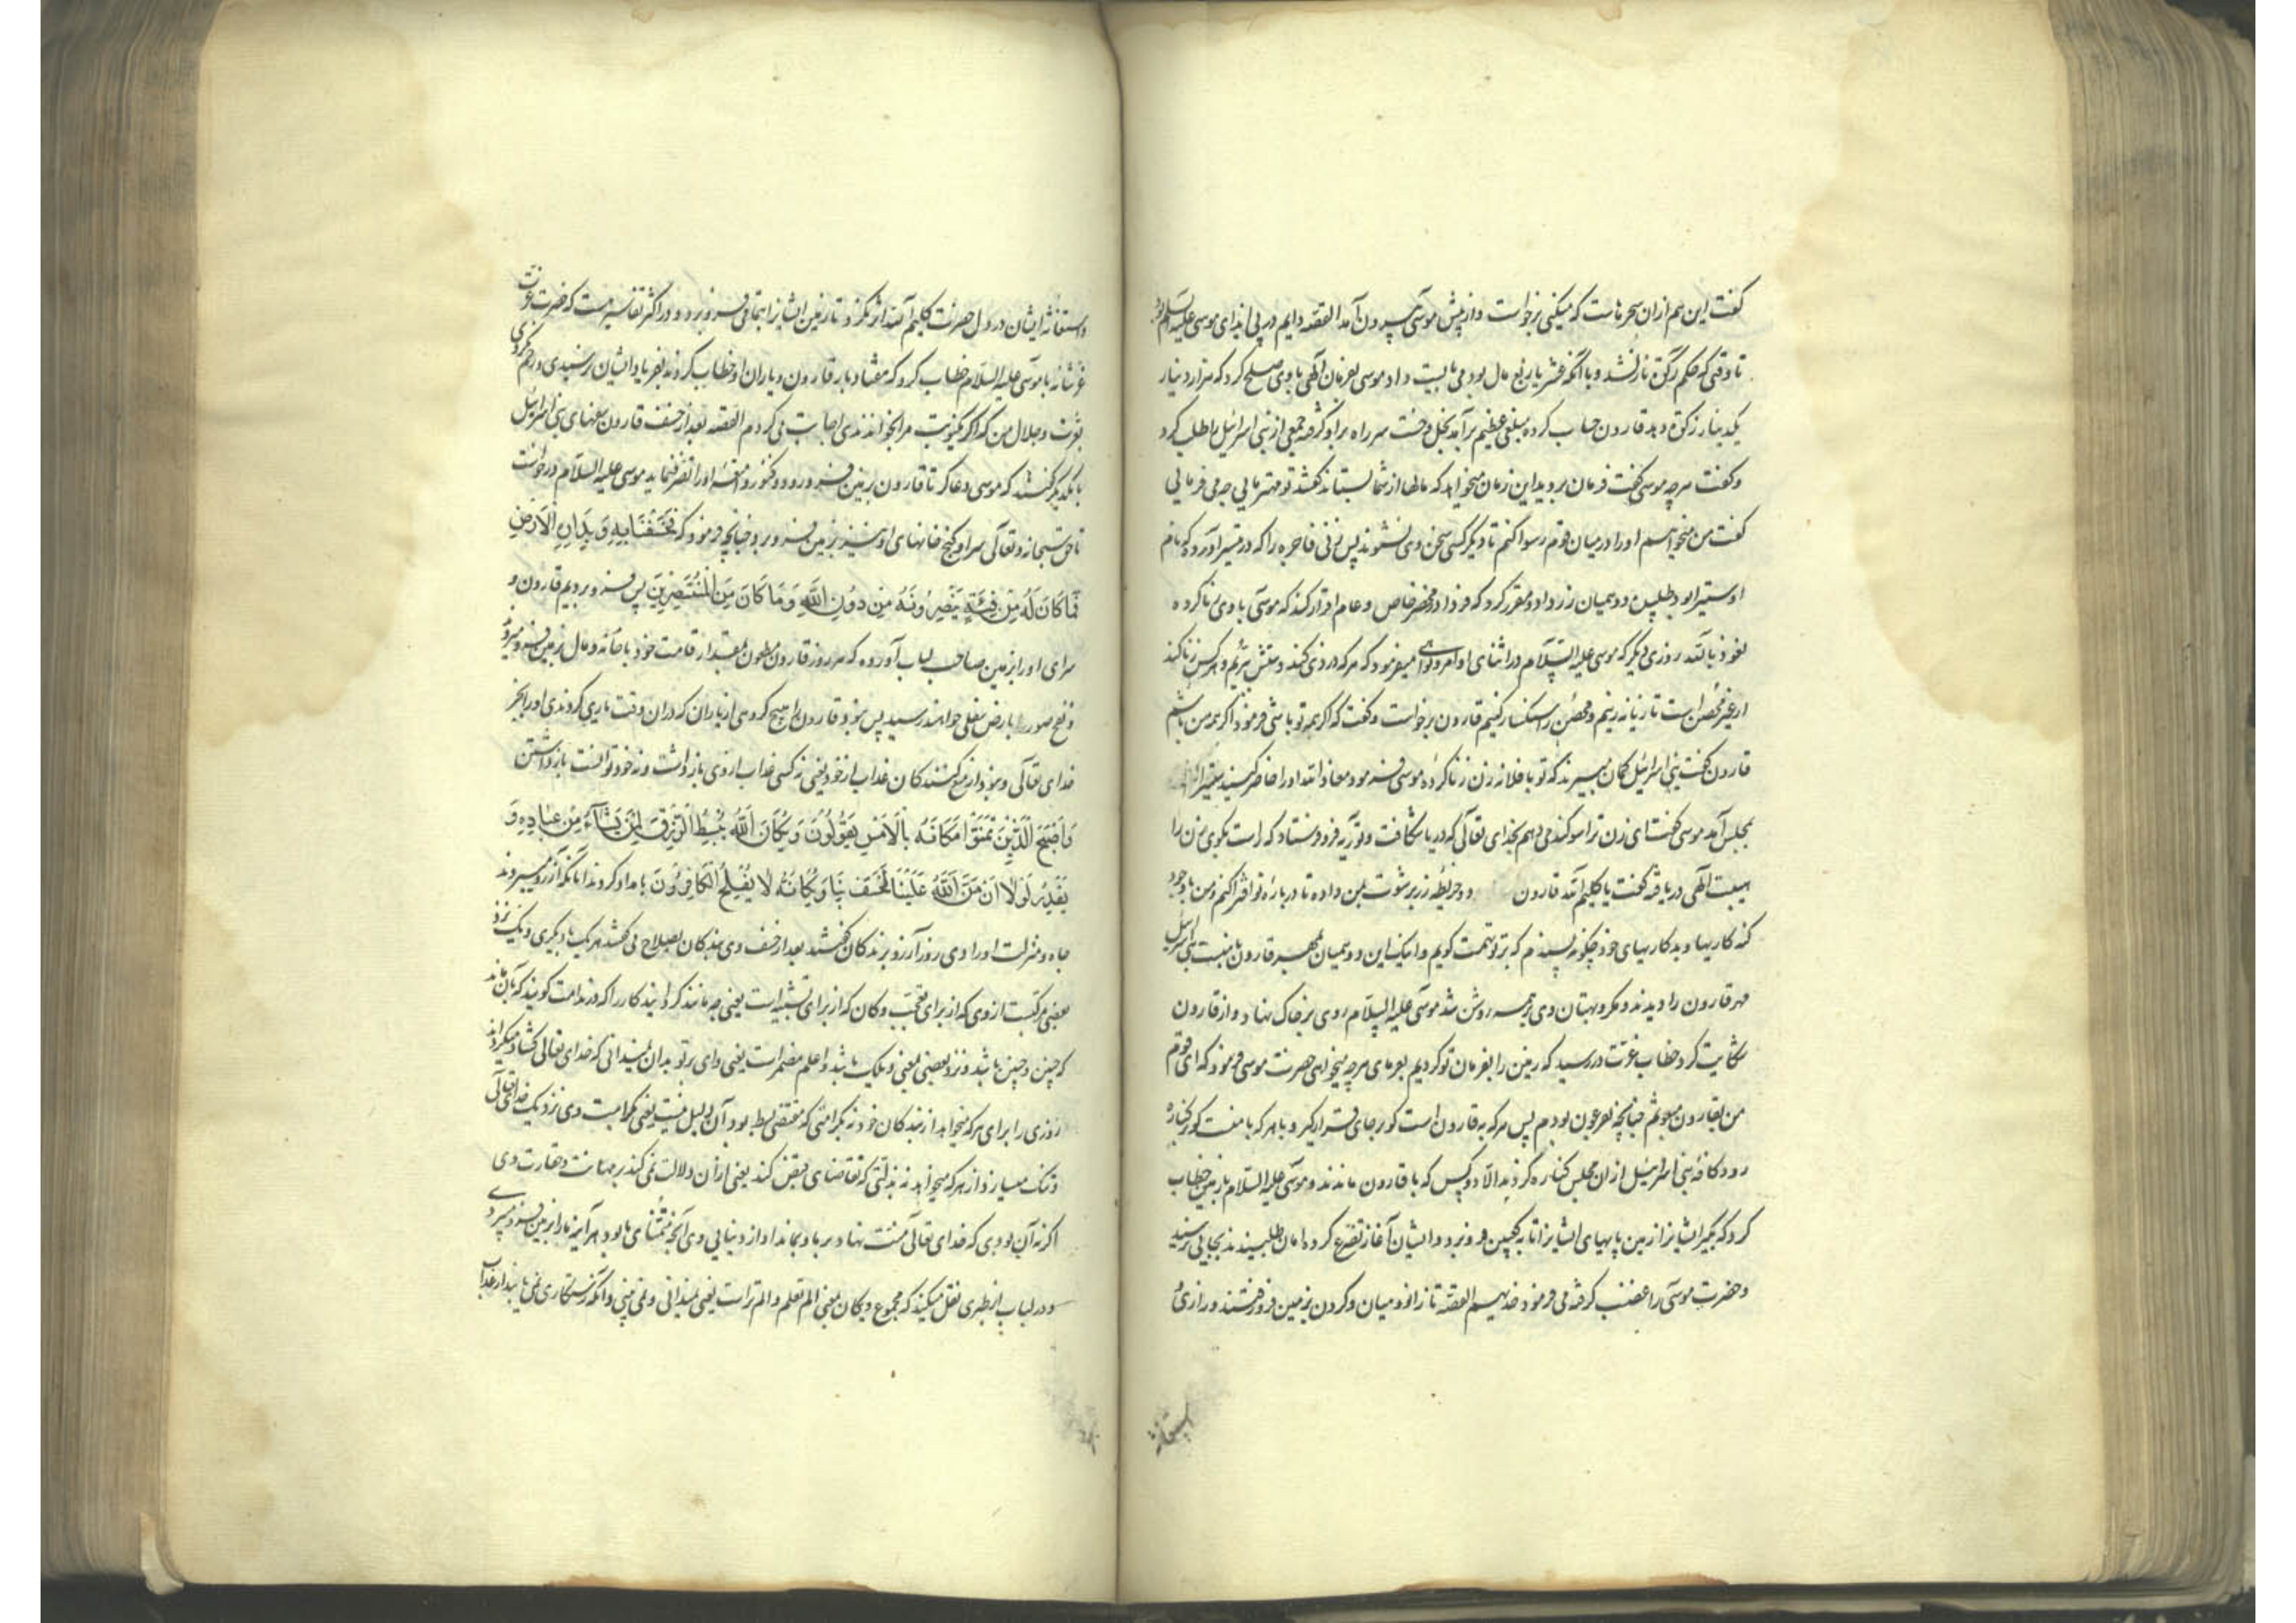 گفت این هم ازان سحرهاست که میکنی برخواست و از پیش موسی بیرون آمد القصه دایم در پی ایذای موسی علیه السلام بود
تا وقتی که حکم زکوة نازل شد و با آنکه عشر یا ربع مال بود می بایست داد موسی بفرمان الهی با وی صلح کرد که هزار دینار
یکدینار زکوة دهد قارون حساب کرده مبلغی عظیم برآمد بخل و خست سر راه براو گرفته جمعی از بنی اسرائیل را طلب کرد
و گفت هرچه موسی گفت فرمان بردید این زمان میخواهد که مالها از شما بستاند گفتند تو مهتر مایی چه می فرمایی
گفت من میخواهم او را در میان قوم رسوا کنم تا دیگر کسی سخن وی نشنوند پس زنی فاجره را که در تفسیر آورده که نام
او سبتیرا بود طلبیده دو همیان زر داد و مقرر کرد که فردا در محضر خاص و عام اقرار کند که موسی با وی زنا کرده
نعوذ بالله روزی دیگر که موسی علیه السلام در اثنای اوامر و نواهی میفرمود که هرکه دزدی کند دستش بریم و هرکس زنا کند
ار غیر محصن است تازیانه زنیم و محصن را سنکسار کنیم قارون برخواست و گفت که اگر همه تو باشی فرمود اگر همه من باشم
قارون گفت بنی اسرائیل گمان میبرند که تو با فلانه زن زنا کردهٔ موسی فرمود معاذ الله او را حاضر کنید سبتیرا
بمجلس آمد موسی گفت ای زن ترا سوگند می دهم بخدای تعالی که دریا شکافت و توریه فرو فرستاد که راست بگوی زن را
هیبت الهی دریافته گفت یا کلیم الله قارون دو خریطه زر برشوت بمن داده تا دربارهٔ تو افترا کنم و من باوجود
گنه کاریها و بدکاریهای خود چگونه پسندم که بر تو تهمت گویم و اینک این دو همیان بمهر قارون بنی اسرائیل
مهر قارون را دیدند و مکر و بهتان وی بر همه روشن شد موسی علیه السلام روی بر خاک نهاد و از قارون
شکایت کرد خطاب عزت در رسید که زمین را بفرمان تو کردیم بفرمای هرچه میخواهی حضرت موسی فرمود که ای قوم
من بقارون مبعوثم چنانچه بفرعون بودم پس هرکه با قارون است کو بر جای قرار گیر و هرکه با منست کو کناره
رود کافهٔ بنی اسرائیل ازان مجلس کناره کردند الا دو کس که با قارون ماندند و موسی علیه السلام بزمین خطاب
کرد که بگیر ایشانرا زمین پاهای ایشانرا تا بکعبین فرو برد و ایشان آغاز تضرع کرده امان طلبیدند بجایی نرسید
و حضرت موسی را غضب گرفته می فرمود خذیهم القصه تا زانو و میان و گردن بزمین فرو رفتند و زاری
و استغاثه ایشان در دل حضرت کلیم الله اثر نکرد تا زمین ایشانرا بتمامی فرو برد و در اکثر تفاسیر هست که حضرت عزت
عز شانه با موسی علیه السلام خطاب کرد که هفتاد بار قارون و یاران او خطاب کردند بفریاد ایشان نرسیدی و رحم نکردی
بعزت و جلال من که اگر یکنوبت مرا بخواندندی اجابت می کردم القصه بعد از خسف قارون بنی اسرائیل
با یکدیگر گفتند که موسی دعا کرد تا قارون بزمین فرو رود و کنوز و امتعه او را تصرف نماید موسی علیه السلام درخواست
تا حق سبحانه و تعالی سرا و گنج خانهای او نیز بزمین فرو برد چنانچه فرمود که فَخَسَفْنَا بِهِ وَبِدَارِهِ الْاَرْضَ
فَمَا كَانَ لَهُ مِنْ فِئَةٍ يَنْصُرُونَهُ مِنْ دُونِ اللَّهِ وَمَا كَانَ مِنَ الْمُنْتَصِرِينَ پس فرو بردیم قارون و
سرای او را بزمین صاحب لباب آورده که هر روز قارون مطعون بمقدار قامت خود با خانه و مال بزمین فرو میرود
و نفخ صور بارض سفلی خواهند رسید پس نبود قارون را هیچ گروهی از یاران که دران وقت یاری کردندی او را بجز
خدای تعالی و نبود از منع کنندگان عذاب از خود یعنی نه کسی عذاب از وی باز داشت و نه خود توانست بازداشتن
وَاَصْبَحَ الَّذِينَ تَمَنَّوْا مَكَانَهُ بِالْاَمْسِ يَقُولُونَ وَيْكَاَنَّ اللَّهَ يَبْسُطُ الرِّزْقَ لِمَنْ يَشَاءُ مِنْ عِبَادِهِ وَ
يَقْدِرُ لَوْلَا اَنْ مَنَّ اللَّهُ عَلَيْنَا لَخَسَفَ بِنَا وَيْكَاَنَّهُ لَا يُفْلِحُ الْكَافِرُونَ بامداد کردند آنانکه آرزو میبردند
جاه و منزلت او را دی روز آرزو برندگان گفتند بعد از خسف وی هر یک با دیگری ویک نزد
بعضی مرکبست از وی که از برای تعجب و کان که از برای تشبیه است یعنی چه مانند
که چنین و چنین باشد و نزد بعضی یعنی ویلک باشد و اعلم مضمر است یعنی وای بر تو بدان که خدای تعالی گشاده میگرداند
روزی را برای هرکه میخواهد از بندگان خود نه بکرامتی که مقتضی بسط بود
و تنک میسازد از هرکه میخواهد نه بذلتی که تقاضای قبض کند یعنی ازان دلالت نمی کند بر مهانت و حقارت وی
اگر نه آن بودی که خدای تعالی منت نهاد بر ما و نداد از دنیایی وی آنچه تمنای ما بود هرآینه ما را بزمین فرو میبرد
و در لباب از طبری نقل میکند که مجموع ویکان یعنی الم تعلم و الم تر است یعنی نمیدانی و نمی بینی